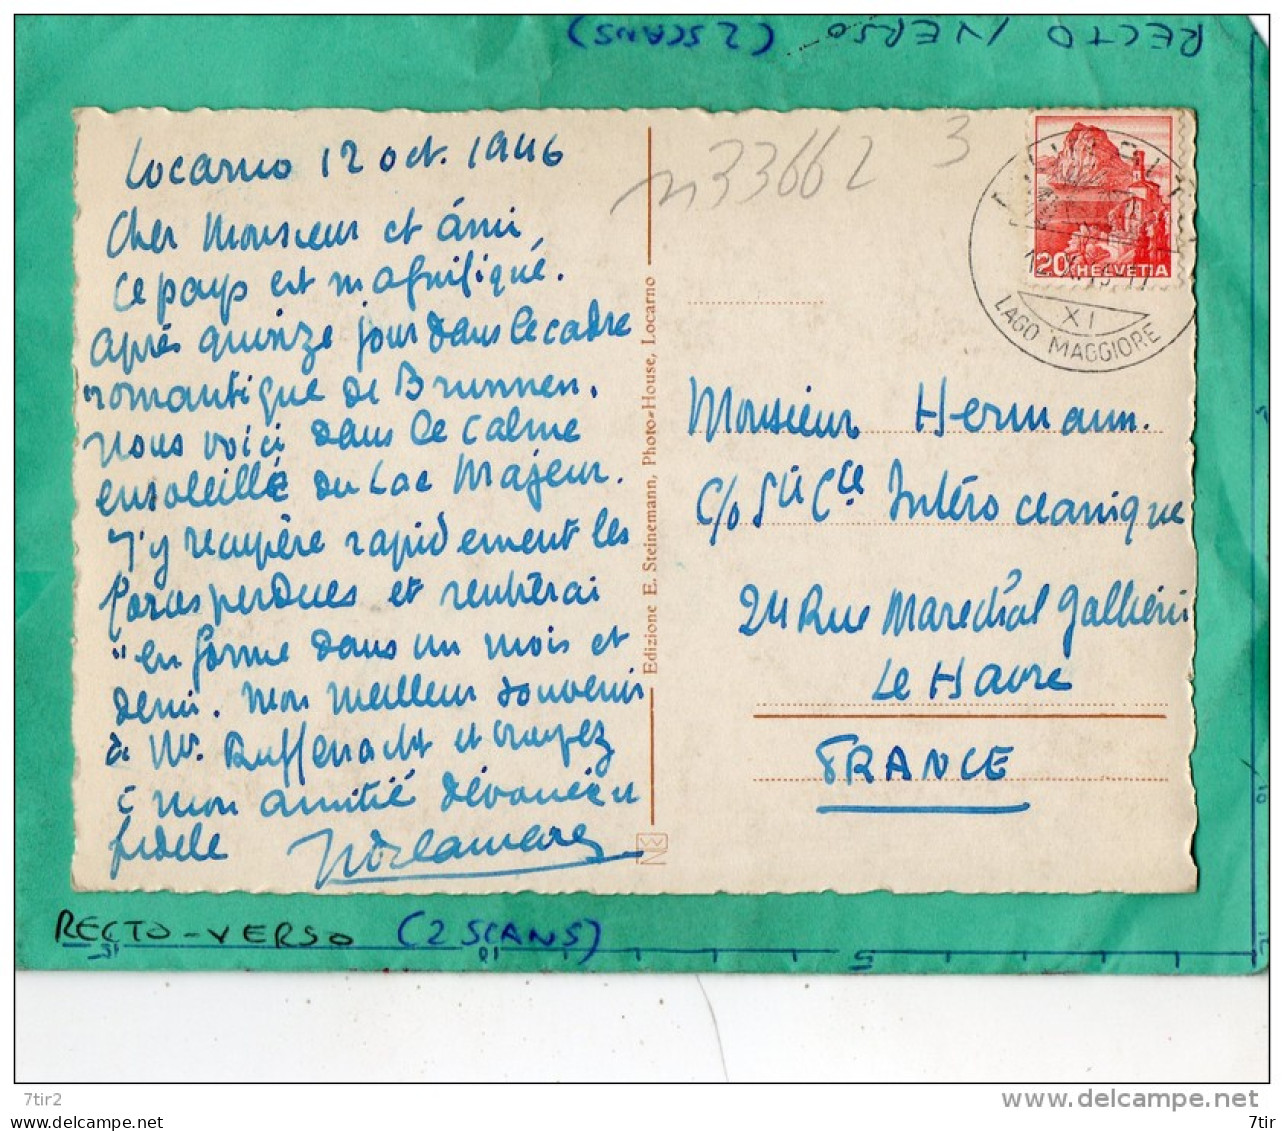 RECTO / VERSO (2 SCANS)
Locarno 12 oct. 1946
Cher Monsieur et ami,
Ce pays est magnifique.
Après quinze jours dans le cadre
romantique de Brunnen.
Nous voici dans le calme
ensoleillé du Lac Majeur.
J'y récupère rapidement les
forces perdues et rentrerai
"en forme dans un mois et
demi. Mon meilleur souvenir
à Mr. Ruffenacht et croyez
à mon amitié dévouée et
fidèle
Edizione E. Steinemann, Photo-House, Locarno
n 33662
3
20 HELVETIA
XI
LAGO MAGGIORE
Monsieur Hermann.
C/o Sté Cie Intérocéanique
24 Rue Maréchal Galliéni
Le Havre
FRANCE
RECTO-VERSO (2 SCANS)
10
5
delcampe.net
7tir2
7tir